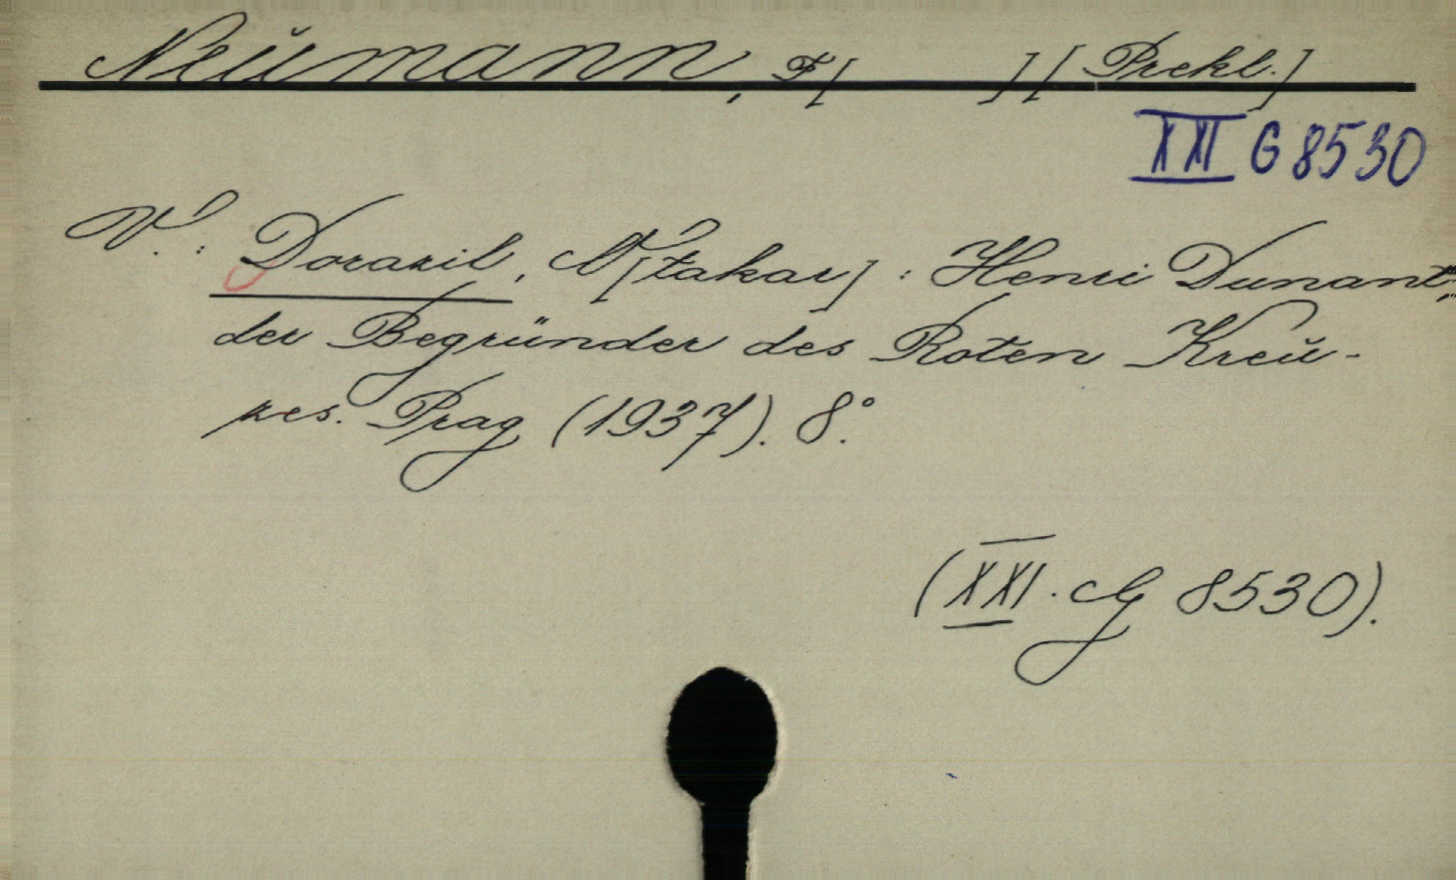 Neumann, F[ ] [Překl.]
XXI G 8530
V.: Dorazil, O[takar]: Henri Dunant,
der Begründer des Roten Kreu-
zes. Prag (1937). 8°.
(XXI. G 8530).